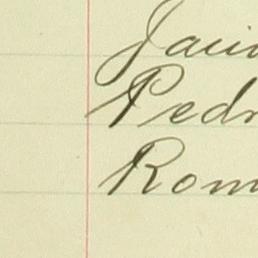 Jaui
Pedr
Rom